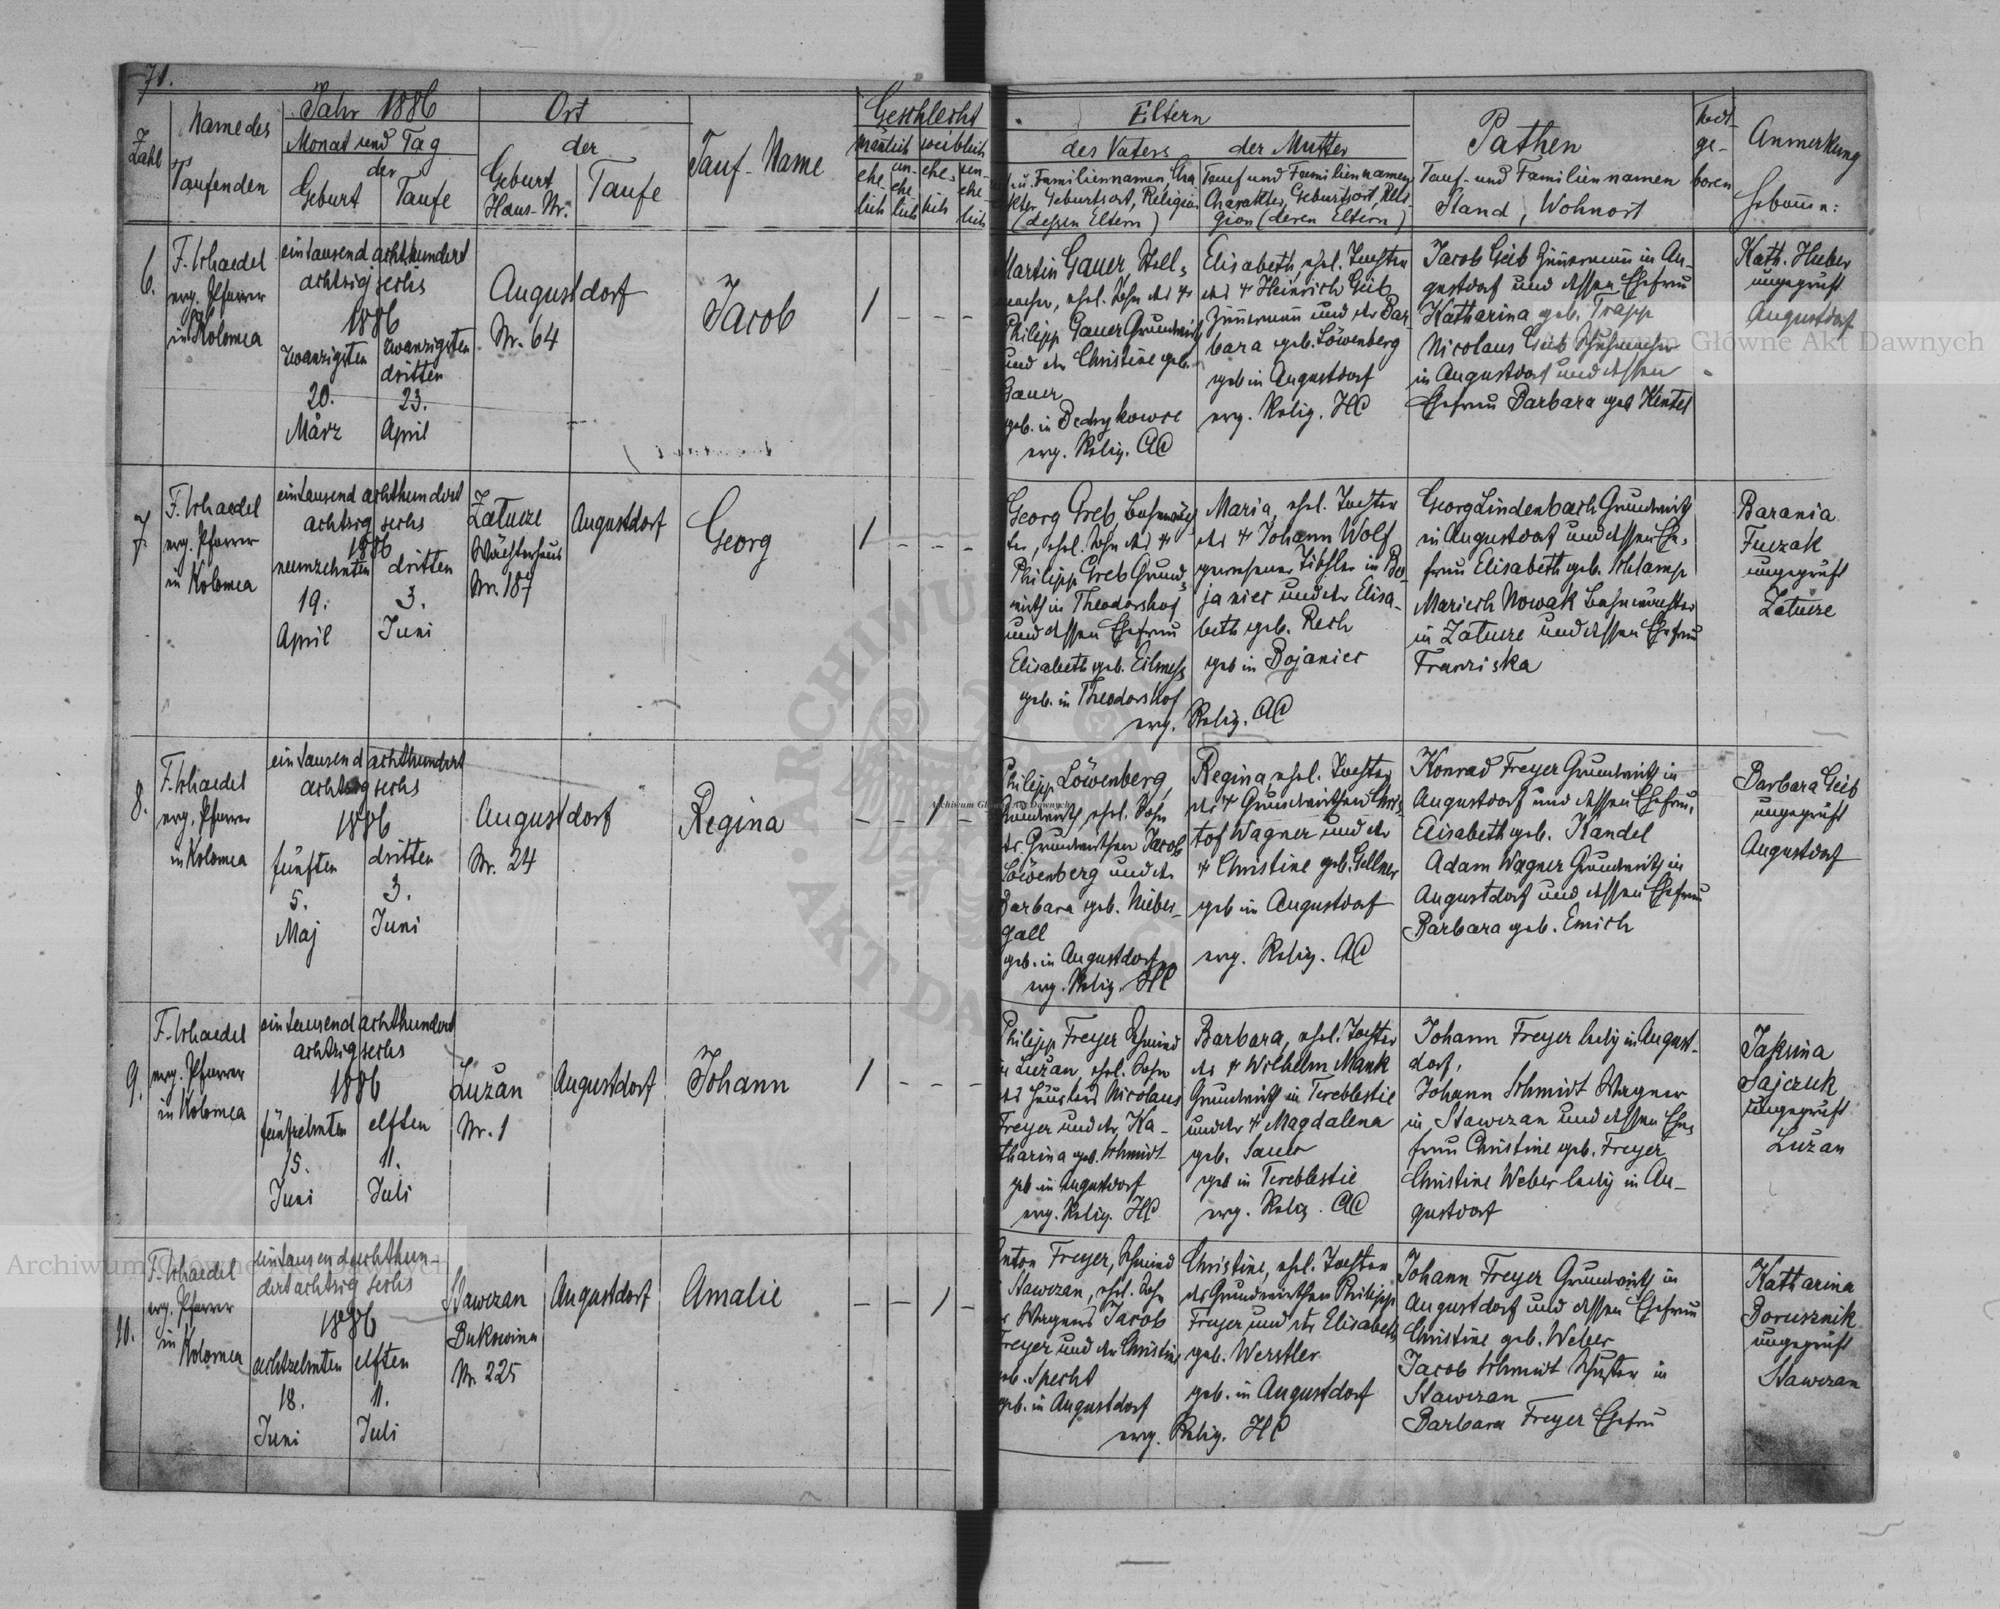 71.
Zahl
Name des
Taufenden
Jahr 1886
Monat und Tag
der
Geburt
Taufe
Ort
der
Geburt
Haus-Nr.
Taufe
Tauf-Name
Geschlecht
mänlich weiblich
ehe-
lich
un-
ehe
lich
ehe-
lich
un-
ehe
lich
Eltern
des Vaters
der Mutter
u. Familiennamen, Cha
kter, Geburtsort, Religion
(dessen Eltern)
Tauf und Familiennamen,
Charakter, Geburtsort, Reli-
gion (deren Eltern)
Pathen
Tauf- und Familiennamen
Stand, Wohnort
Todt-
ge-
boren
Anmerkung
Hebamme:
6.
F. Schaedel
evg. Pfarrer
in Kolomea
eintausend achthundert
achtzig sechs
1886
zwanzigsten
20.
März
zwanzigsten
dritten
23.
April
Augustdorf
Nr. 64
Jacob
1 - - -
Martin Gauer, Stell-
macher, ehel. Sohn des +
Philipp Gauer Grundwirth
und der Christine geb.
Gauer
geb. in Bedrykowce
evg. Relig. AC
Elisabeth, ehel. Tochter
des + Heinrich Geib
Zimmermann und der Bar-
bara geb. Löwenberg
geb in Augustdorf
evg. Relig. HC
Jacob Geib Zimmermann in Au-
gustdorf und dessen Ehefrau
Katharina geb. Trapp
Nicolaus Geib Schuhmacher
in Augustdorf und dessen
Ehefrau Barbara geb Kentel
Kath. Huber
ungeprüft
Augustdorf
7.
F. Schaedel
evg. Pfarrer
in Kolomea
eintausend achthundert
achtzig sechs
1886
neunzehnten
19.
April
dritten
3.
Juni
Zatucze
Wächterhaus
Nr. 187
Augustdorf
Georg
1 - - -
Georg Greb, Bahnwäch
ter, ehel. Sohn des +
Philipp Greb Grund-
wirth in Theodorshof
und dessen Ehefrau
Elisabeth geb. Eilmess
geb. in Theodorshof
Maria, ehel. Tochter
des + Johann Wolf
gewesener Tischler in Bo-
janiec und der Elisa-
beth geb. Rech
geb in Bojaniec
evg. Relig. AC
Georg Lindenbach Grundwirth
in Augustdorf und dessen Ehe-
frau Elisabeth geb. Schlamp
Mariech Nowak Bahnwächter
in Zatucze und dessen Ehefrau
Franziska
Barania
Fuczak
ungeprüft
Zatucze
8.
F. Schaedel
evg. Pfarrer
in Kolomea
eintausend achthundert
achtzig sechs
1886
fünften
5.
Maj
dritten
3.
Juni
Augustdorf
Nr. 24
Regina
- - 1 -
Philipp Löwenberg,
Grundwirth, ehel. Sohn
des Grundwirthen Jacob
Löwenberg und der
Barbara geb. Niebes-
gall
geb. in Augustdorf
evg. Relig. HC
Regina, ehel. Tochter
des + Grundwirthen Chris-
tof Wagner und der
+ Christine geb. Gellner
geb in Augustdorf
evg. Relig. AC
Konrad Freyer Grundwirth in
Augustdorf und dessen Ehefrau,
Elisabeth geb. Kandel
Adam Wagner Grundwirth in
Augustdorf und dessen Ehefrau
Barbara geb. Emich
Barbara Geib
ungeprüft
Augustdorf
9.
F. Schaedel
evg. Pfarrer
in Kolomea
eintausend achthundert
achtzig sechs
1886
fünfzehnten
15.
Juni
elften
11.
Juli
Luzan
Nr. 1
Augustdorf
Johann
1 - - -
Philipp Freyer Schmied
in Luzan, ehel. Sohn
des Häuslers Nicolaus
Freyer und der Ka-
tharina geb. Schmidt
geb in Augustdorf
evg. Relig. HC
Barbara, ehel. Tochter
des + Wilhelm Mank
Grundwirth in Tereblestie
und der + Magdalena
geb. Sauer
geb in Tereblestie
evg. Relig. AC
Johann Freyer ledig in August-
dorf,
Johann Schmidt Wagner
in Stawczan und dessen Ehe-
frau Christine geb. Freyer
Christine Weber ledig in Au-
gustdorf
Jakrina
Sajczuk
ungeprüft
Luzan
10.
F. Schaedel
evg. Pfarrer
in
Kolomea
eintausend achthun-
dert achtzig sechs
1886
achtzehnten
18.
Juni
elften
11.
Juli
Stawczan
Bukowina
Nr. 225
Augustdorf
Amalie
- - 1 -
Anton Freyer, Schmied
Stawczan, ehel. Sohn
Wagners Jacob
Freyer und der Christine
geb. Specht
geb. in Augustdorf
Christine, ehel. Tochter
des Grundwirthen Philipp
Freyer und der Elisabeth
geb. Werstler
geb. in Augustdorf
evg. Relig. HC
Johann Freyer Grundwirth in
Augustdorf und dessen Ehefrau
Christine geb. Weber
Jacob Schmidt Schuster in
Stawczan
Barbara Freyer Ehefrau
Katharina
Borusznik
ungeprüft
Stawczan
Archiwum Główne Akt Dawnych